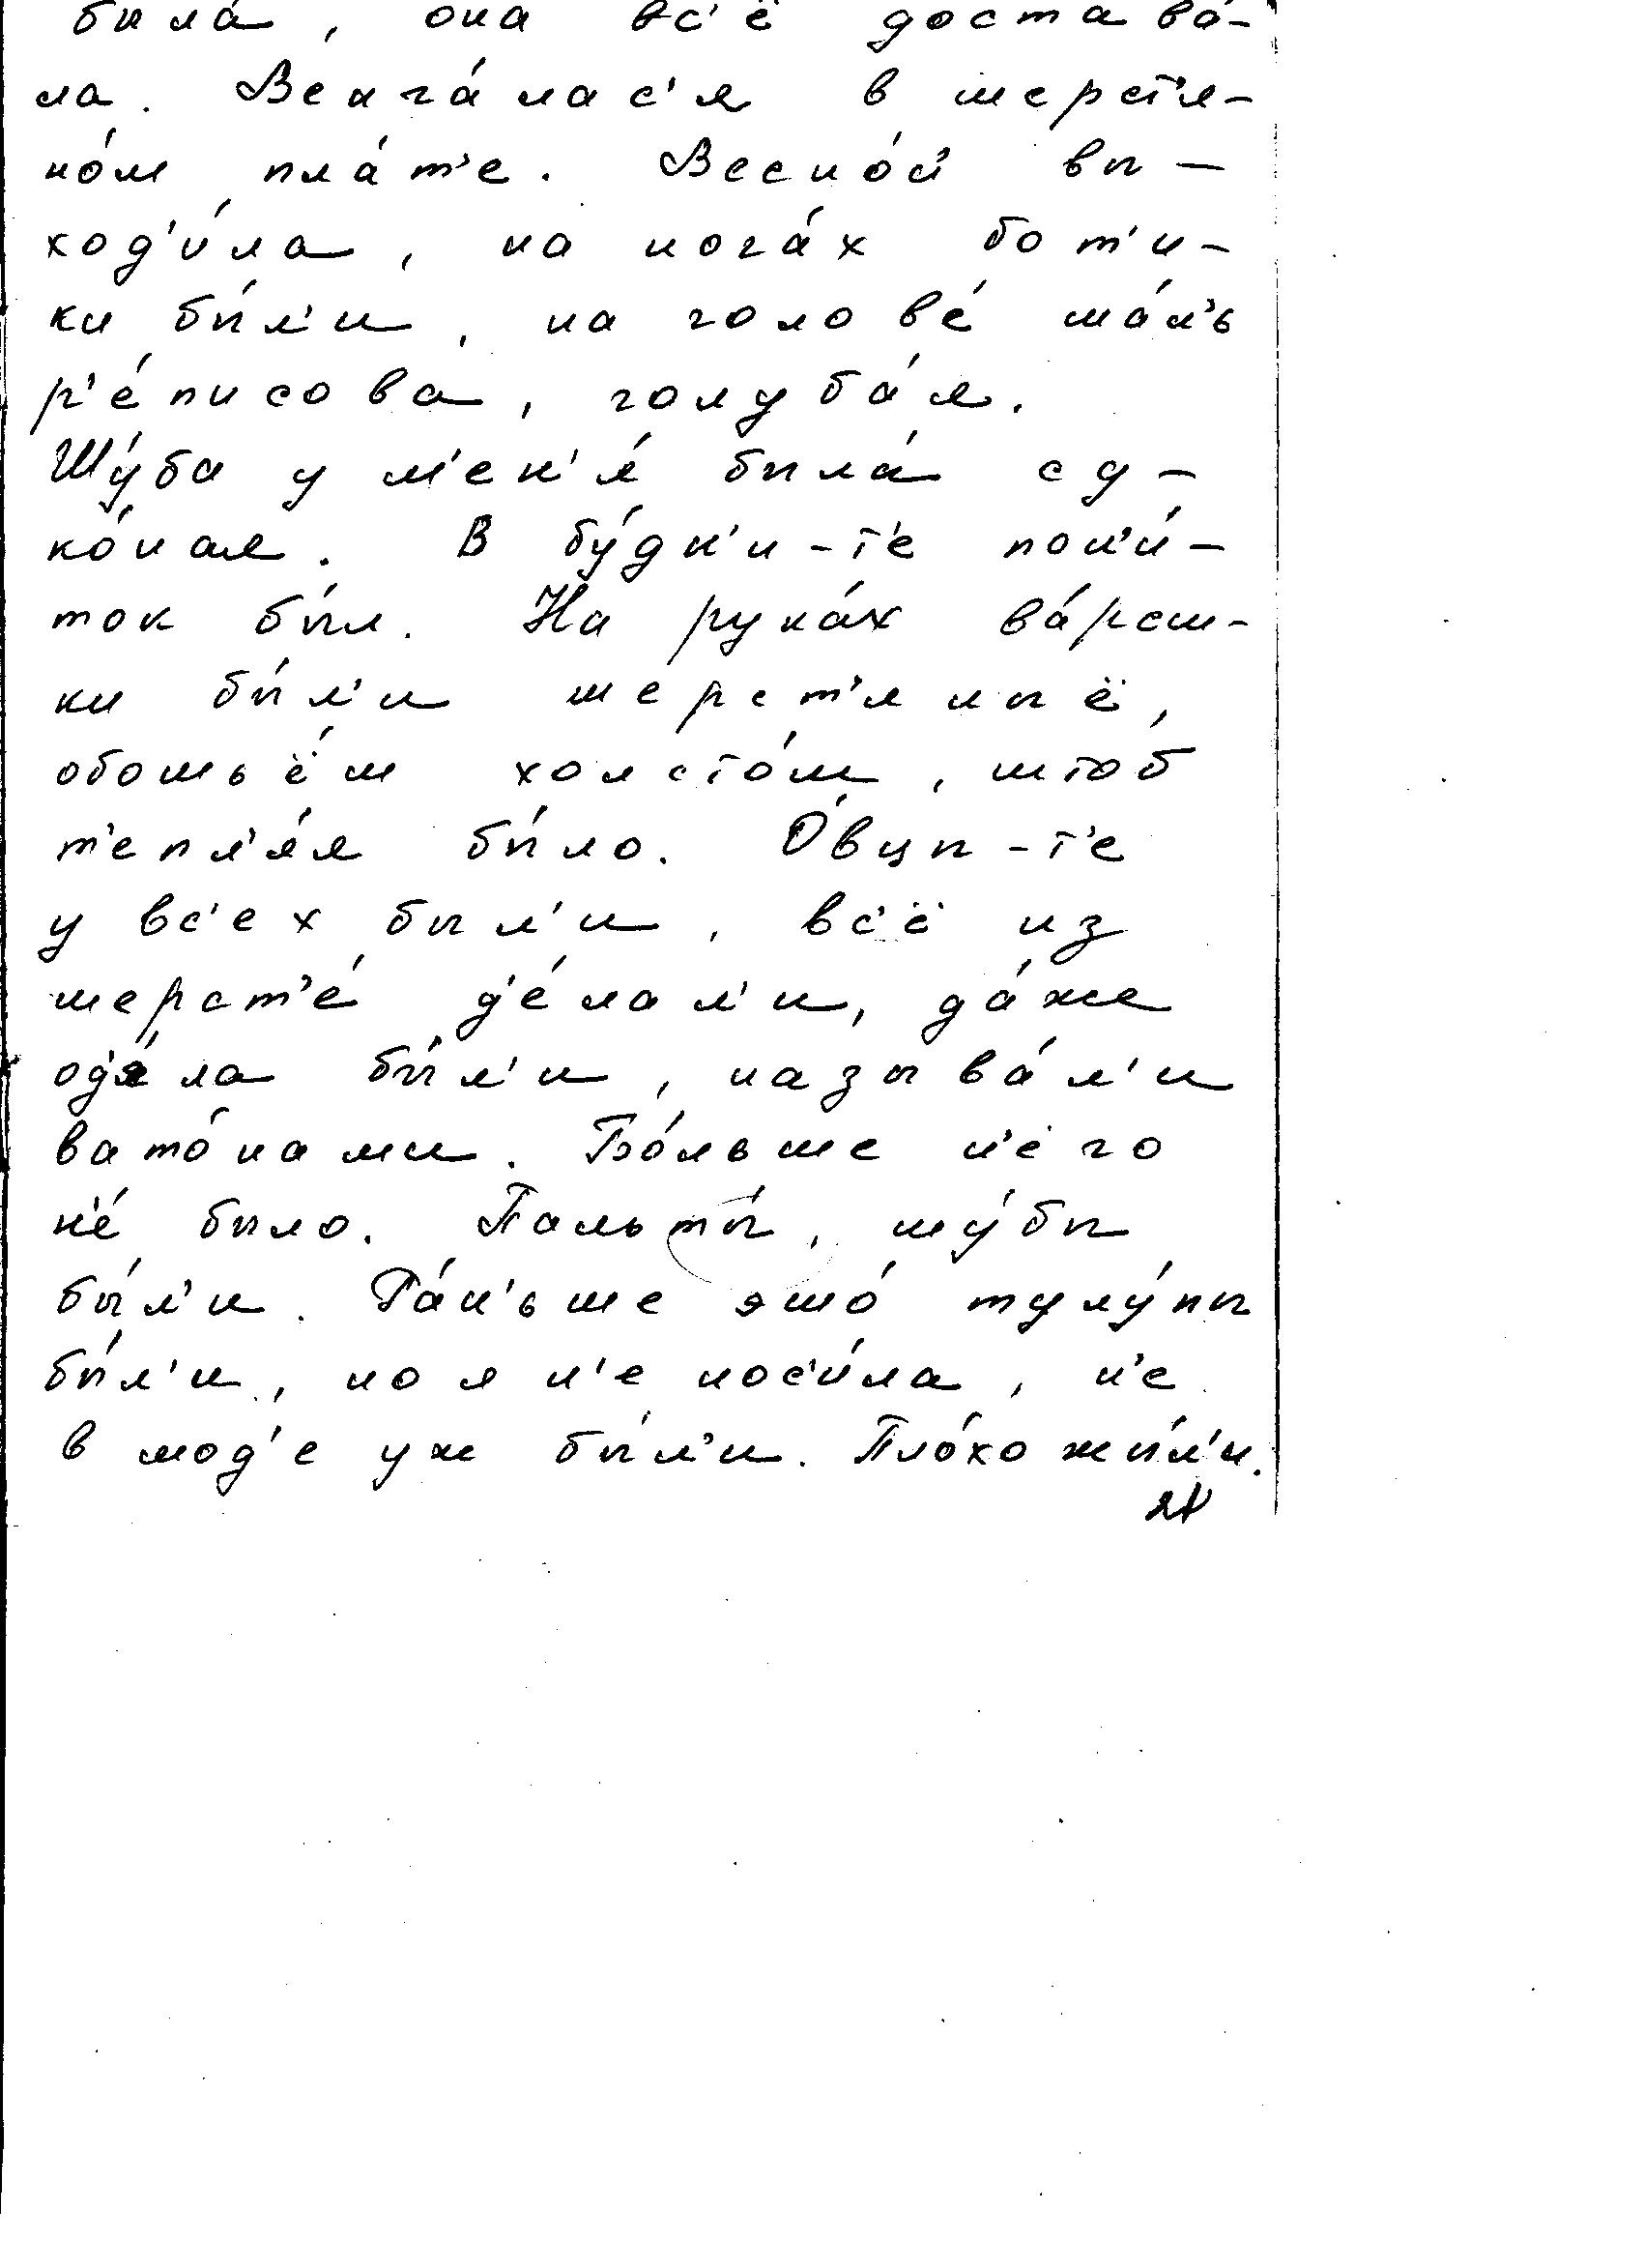 была́, она вс'ё достава́-
ла. Венча́лас'я в шерст'я-
но́м пла́т'е. Весно́й вы-
ход'и́ла, на нога́х бот'и-
ки бы́л'и, на голове́ ша́л'ь
р'е́писова, голуба́я.
Шу́ба у м'ен'я́ была́ су-
ко́ная. В бу́дн'и-т'е пон'и́-
ток бы́л. На рука́х ва́реш-
ки бы́л'и шерст'яныё,
обошьём холсто́м, штоб
т'епл'я́я бы́ло. О́вцы-т'е
у вс'ех был'и, вс'ё из
шерст'е́ д'е́лал'и, да́же
од'я́ла бы́л'и, называ́л'и
вато́нами. Бо́льше н'ёго
н'е́ было. Пальты́, шу́бы
бы́л'и. Ра́н'ьше эшо́ тулу́пы
бы́л'и, но я н'е нос'и́ла, н'е
в мод'е уж бы́л'и. Пло́хо жы́л'и.